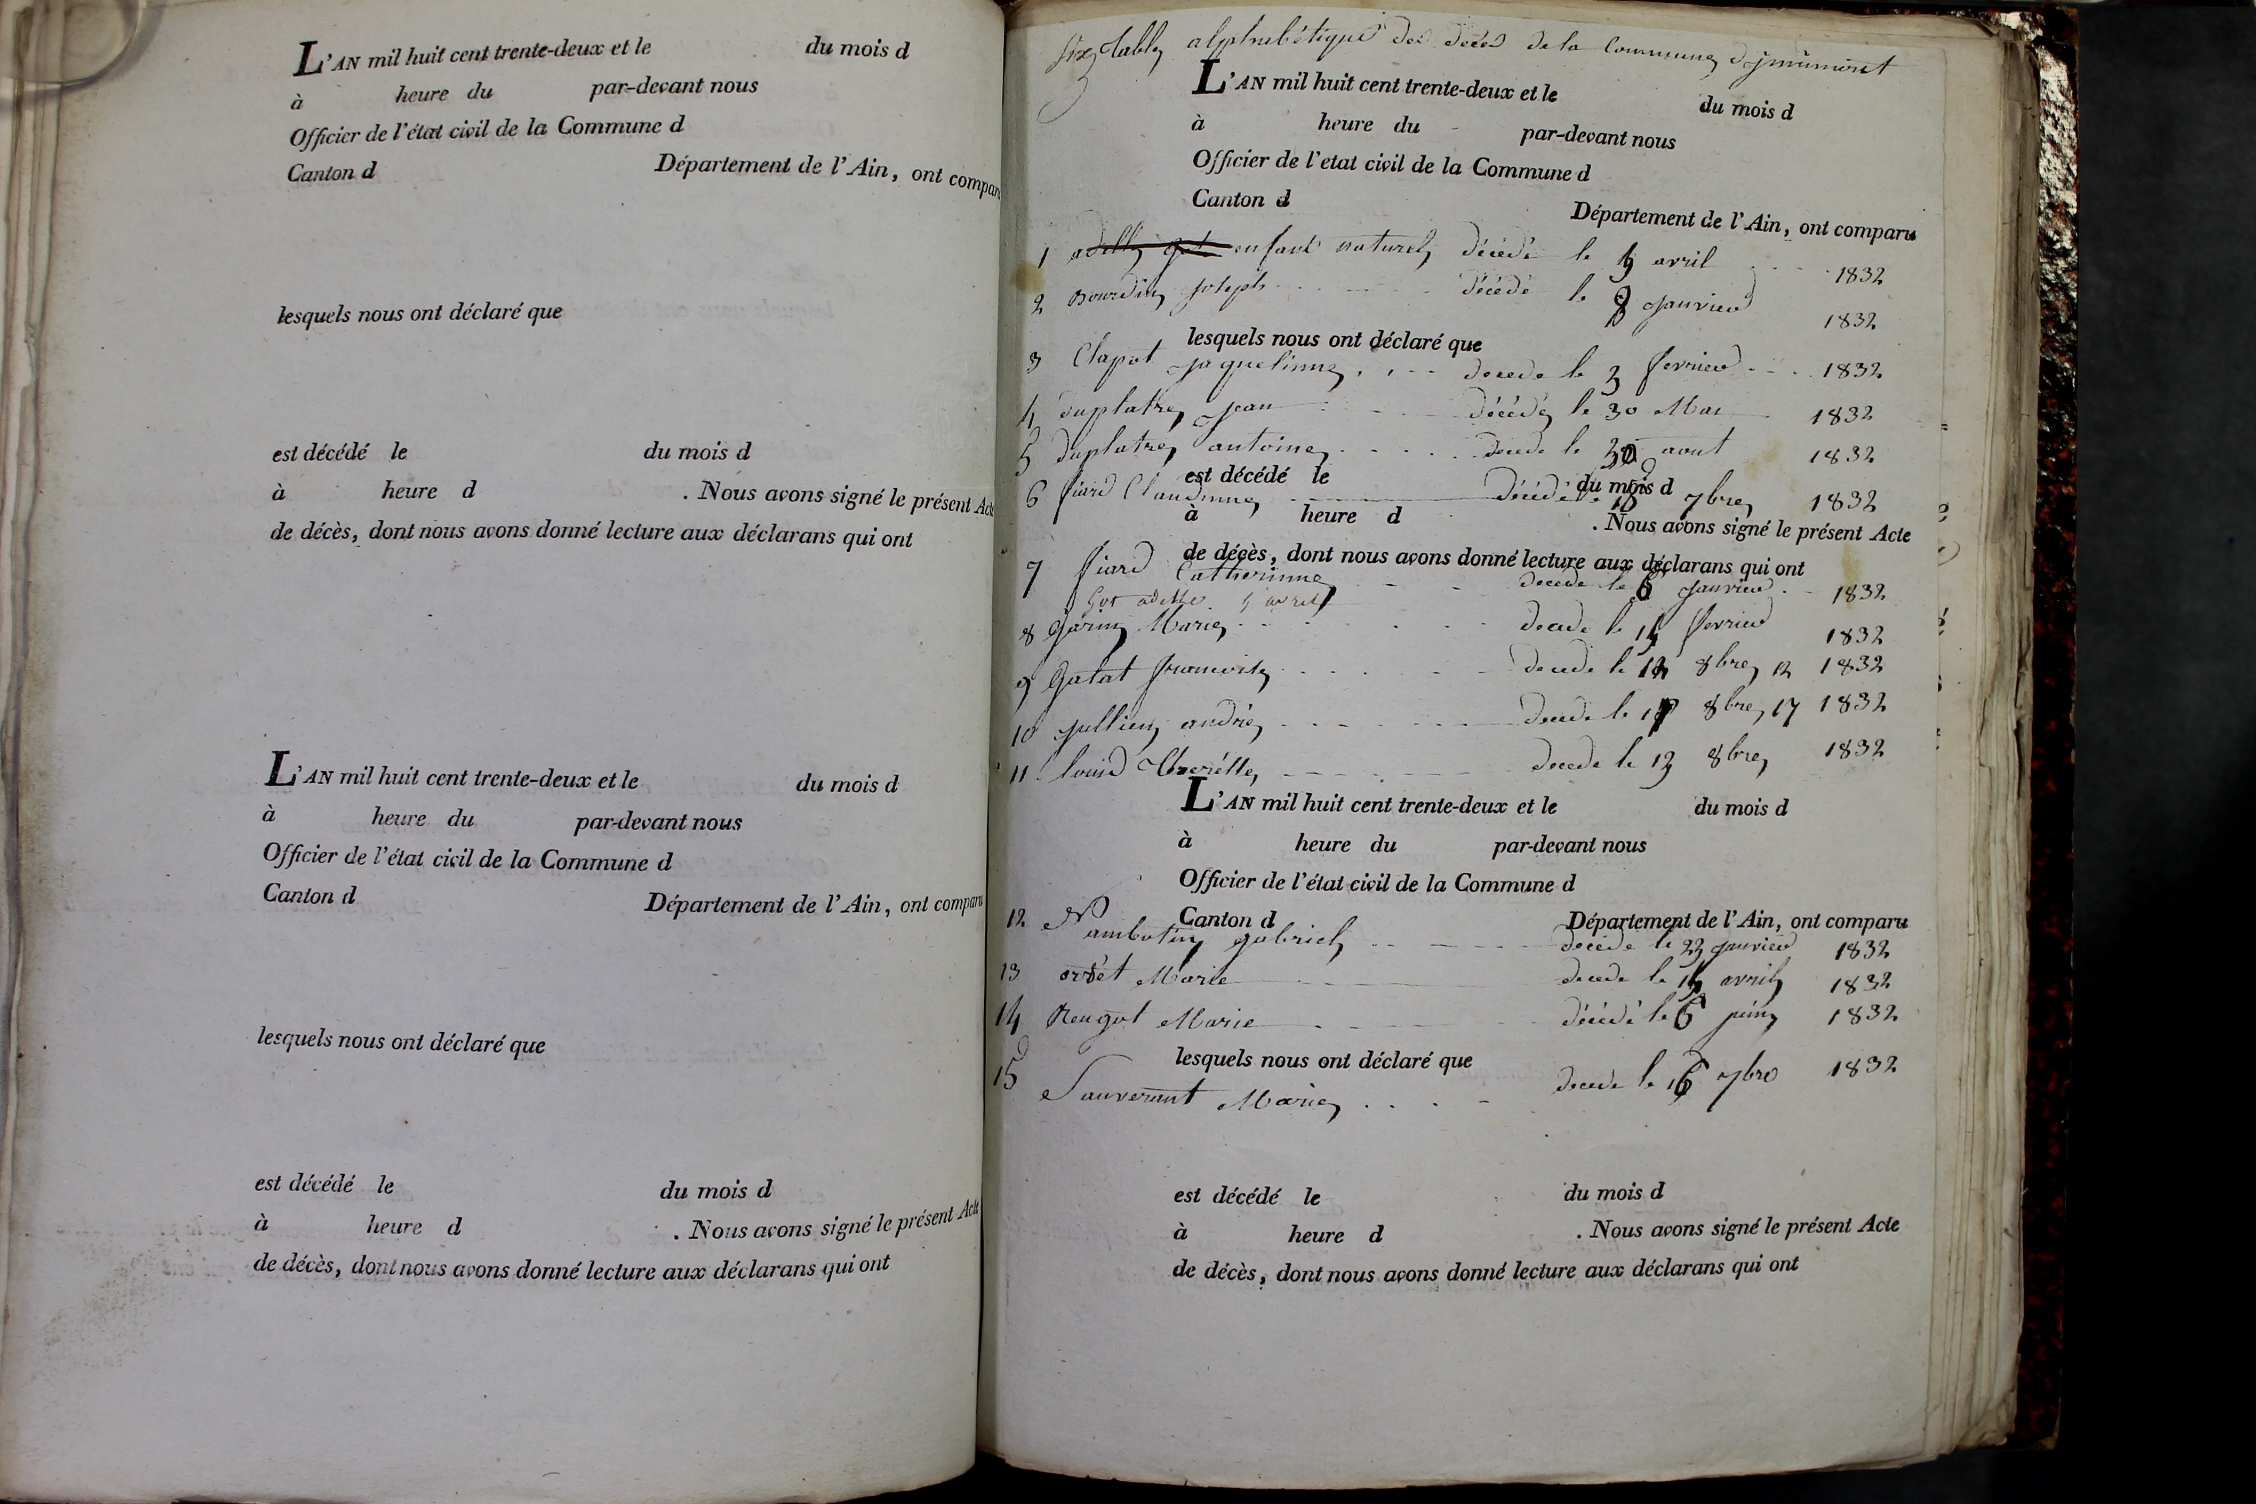 L'AN mil huit cent trente-deux et le du mois d
à heure du par-devant nous
Officier de l'état civil de la Commune d
Canton d Département de l'Ain, ont comparu
lesquels nous ont déclaré que
est décédé le du mois d
à heure d . Nous avons signé le présent Acte
de décès, dont nous avons donné lecture aux déclarans qui ont
L'AN mil huit cent trente-deux et le du mois d
à heure du par-devant nous
Officier de l'état civil de la Commune d
Canton d Département de l'Ain, ont comparu
lesquels nous ont déclaré que
est décédé le du mois d
à heure d . Nous avons signé le présent Acte
de décès, dont nous avons donné lecture aux déclarans qui ont
table alphabétique des décés de la Commune
L'AN mil huit cent trente-deux et le du mois d
à heure du par-devant nous
Officier de l'etat civil de la Commune d
Canton d Département de l'Ain, ont comparu
1 adelle got enfant naturel décédé le 4 avril 1832
2 Bourdin joseph décédé le 8 janvier 1832
lesquels nous ont déclaré que
3 Clapot jaquelinne decede le 3 fevrier 1832
4 duplatre jean décédé le 30 Mai 1832
5 duplatre antoine decede le 30 aout 1832
est décédé le du mois d
6 fiard Claudinne décédé le 18 7bre 1832
à heure d . Nous avons signé le présent Acte
de décès, dont nous avons donné lecture aux déclarans qui ont
7 fiard Catherinne decede le 6 janvier 1832
Got adelle 4 avril
8 Garin Marie decede le 14 fevrier 1832
9 Galat francoise decede le 12 8bre 12 1832
10 jullien andré decede le 17 8bre 17 1832
11 Louis decede le 13 8bre 1832
L'AN mil huit cent trente-deux et le du mois d
à heure du par-devant nous
Officier de l'état civil de la Commune d
Canton d Département de l'Ain, ont comparu
12 Nambotin gabriel decede le 23 janvier 1832
13 ordet Marie decede le 14 avril 1832
14 Rengot Marie décédé le 6 juin 1832
lesquels nous ont déclaré que
15 Sauverant Marie decede le 16 7bre 1832
est décédé le du mois d
à heure d . Nous avons signé le présent Acte
de décès, dont nous avons donné lecture aux déclarans qui ont